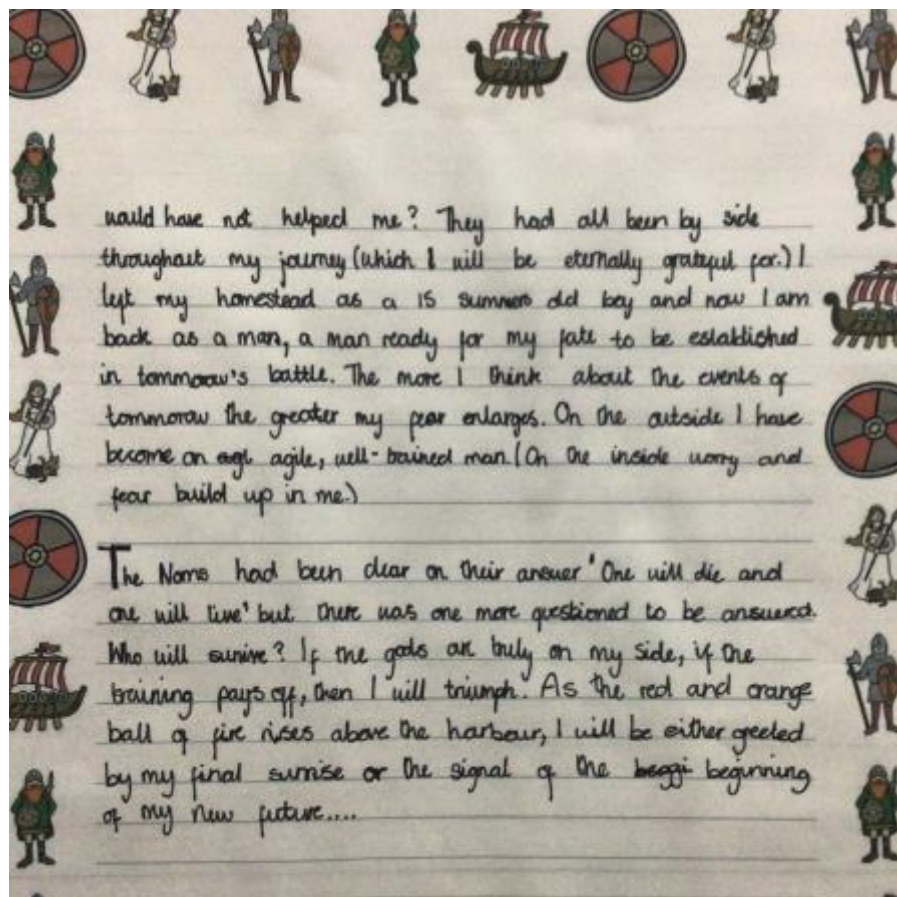 would have not helped me? They had all been by side
throughout my journey (which I will be eternally grateful for.) I
left my homestead as a 15 summers old boy and now I am
back as a man, a man ready for my fate to be established
in tommorow's battle. The more I think about the events of
tommorow the greater my fear enlarges. On the outside I have
become an agil agile, well-trained man (On the inside worry and
fear build up in me.)
The Norns had been clear on their answer 'One will die and
one will live' but there was one more questioned to be answered.
Who will survive? If the gods are truly on my side, if the
training pays off, then I will triumph. As the red and orange
ball of fire rises above the harbour, I will be either greeted
by my final sunrise or the signal of the beggi beginning
of my new future....